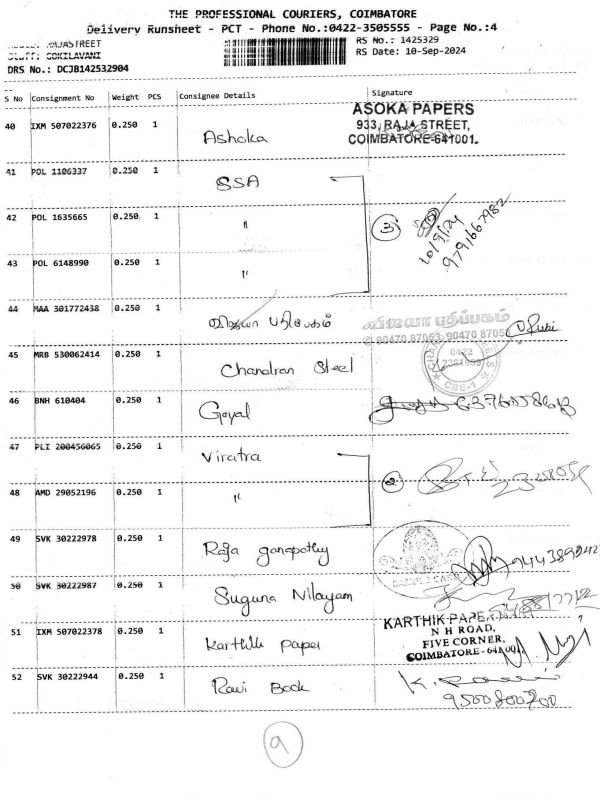 THE PROFESSIONAL COURIERS, COIMBATORE
Delivery Runsheet - PCT - Phone No.:0422-3505555 - Page No.:4
RAJASTREET RS No.: 1425329
Staff: GOKILAVANI RS Date: 10-Sep-2024
DRS No.: DCJB142532904
S No Consignment No Weight PCS Consignee Details Signature
40 IXM 507022376 0.250 1 Ashoka
ASOKA PAPERS
933, RAJA STREET,
COIMBATORE-641001.
41 POL 1106337 0.250 1 SSA
42 POL 1635665 0.250 1 " 3 10/9/24
9791667982
43 POL 6148990 0.250 1 "
44 MAA 301772438 0.250 1 விஜயா பதிப்பகம்
விஜயா பதிப்பகம்
90470 87053, 90470 8705
45 MRB 530062414 0.250 1 Chandran Steel
0422
CBE-1
46 BNH 610404 0.250 1 Goyal
47 PLI 200456065 0.250 1 Viratra
2
48 AMD 29052196 0.250 1 "
49 SVK 30222978 0.250 1 Raja ganapathy
50 SVK 30222987 0.250 1 Suguna Nilayam
51 IXM 507022378 0.250 1 Karthik paper
KARTHIK PAPE
N H ROAD,
FIVE CORNER,
COIMBATORE-641001.
52 SVK 30222944 0.250 1 Ravi Book
K.
9500800700
9